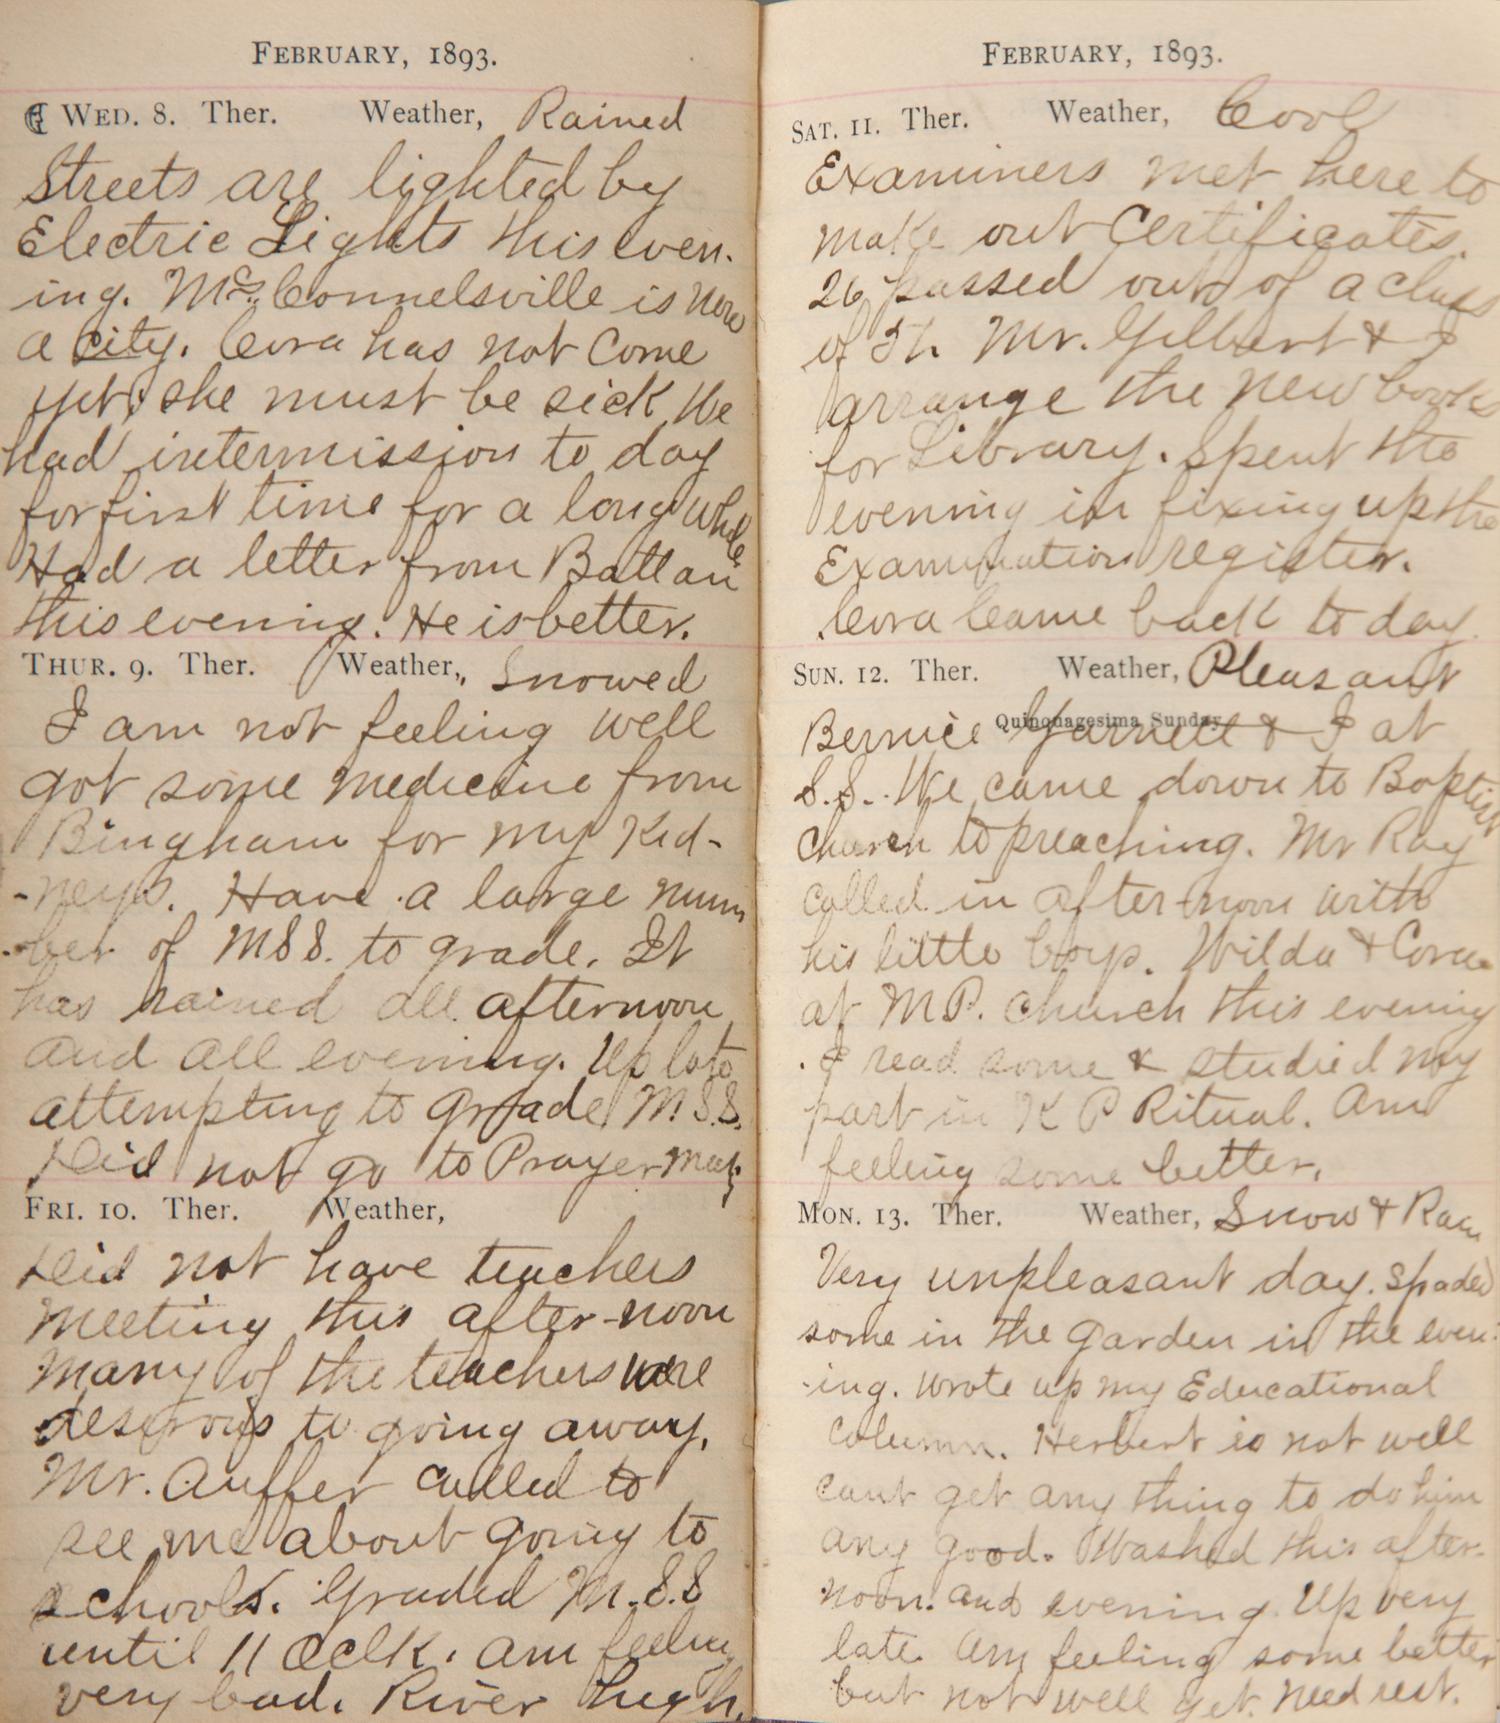 FEBRUARY, 1893.
WED. 8. Ther. Weather, Rained
Streets are lighted by
Electric Lights this even.
ing. McConnelsville is now
a city. Cora has not Come
yet, she must be sick We
had intermission to day
for first time for a long while
Had a letter from Battan
this evening. He is better.
THUR. 9. Ther. Weather, Snowed
I am not feeling well
got some medicine from
Bingham for my Kid-
-neys. Have a large num
-ber of MSS. to grade. It
has rained all afternoon
and all evening. Up late
attempting to grade M.S.S.
Did not go to Prayer meetg
FRI. 10. Ther. Weather,
Did not have teachers
meeting this after-noon
many of the teachers were
desirous to going away.
Mr. Auffer called to
see me about going to
schools. Graded M.S.S
until 11 Oclk. am feeling
very bad. River high.
FEBRUARY, 1893.
SAT. 11. Ther. Weather, Cool
Examiners met here to
make out Certificates.
26 passed out of a class
of Mr. Gilbert & I
arrange the new books
for Library. Spent the
evening in fixing up the
Examination register.
Cora Came back to day.
SUN. 12. Ther. Weather, Pleasant
Quinquagesima Sunday
Bernice Yarnell & I at
S.S. We came down to Baptist
Church to preaching. Mr Ray
called in after-noon with
his little boys. Wilda & Cora
at M.P. Church this evening
I read some & studied my
part in K P Ritual. Am
feeling some better.
MON. 13. Ther. Weather, Snow & Rain
Very unpleasant day. Spaded
some in the garden in the even-
-ing. Wrote up my Educational
Column. Herbert is not well
cant get any thing to do him
any good. Washed this after-
noon. and evening. Up very
late. Am feeling some better
but not well yet. Need rest.